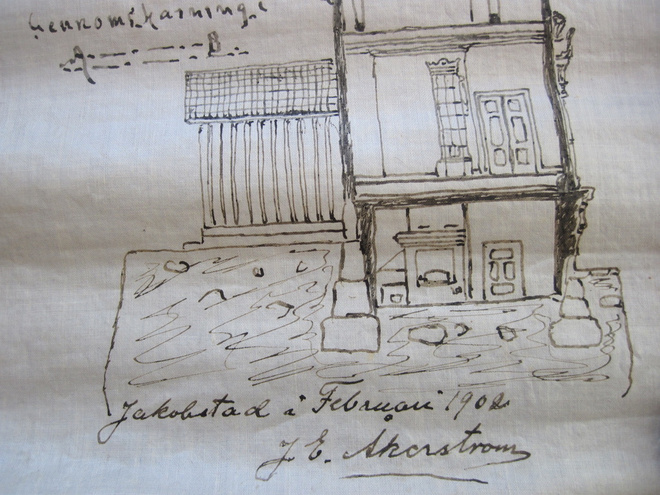 Genomskärning:
A B
Jakobstad i Februari 1902
J. E. Åkerström